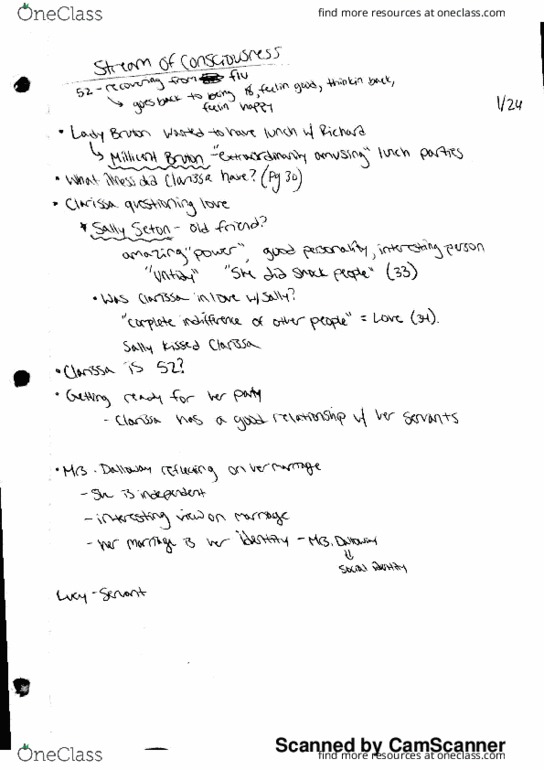 OneClass
find more resources at oneclass.com
Stream of Consciousness
52 - recovering from flu
↳ goes back to being 18, feelin good, thinkin back,
feelin happy
1/24
• Lady Bruton wanted to have lunch w/ Richard
↳ Millicent Bruton - "extraordinarily amusing" lunch parties
• What illness did Clarissa have? (Pg 30)
• Clarissa questioning love
* Sally Seton - old friend?
amazing "power", good personality, interesting person
"untidy" "She did shock people" (33)
• Was Clarissa in love w/ Sally?
"complete indifference of other people" = Love (34).
Sally kissed Clarissa
• Clarissa is 52?
• Getting ready for her party
- Clarissa has a good relationship w/ her servants
• Mrs. Dalloway reflecing on her marriage
- She is independent
- interesting view on marriage
- her marriage is her identity - Mrs. Dalloway
⇓
social identity
Lucy - Servant
OneClass
Scanned by CamScanner
find more resources at oneclass.com